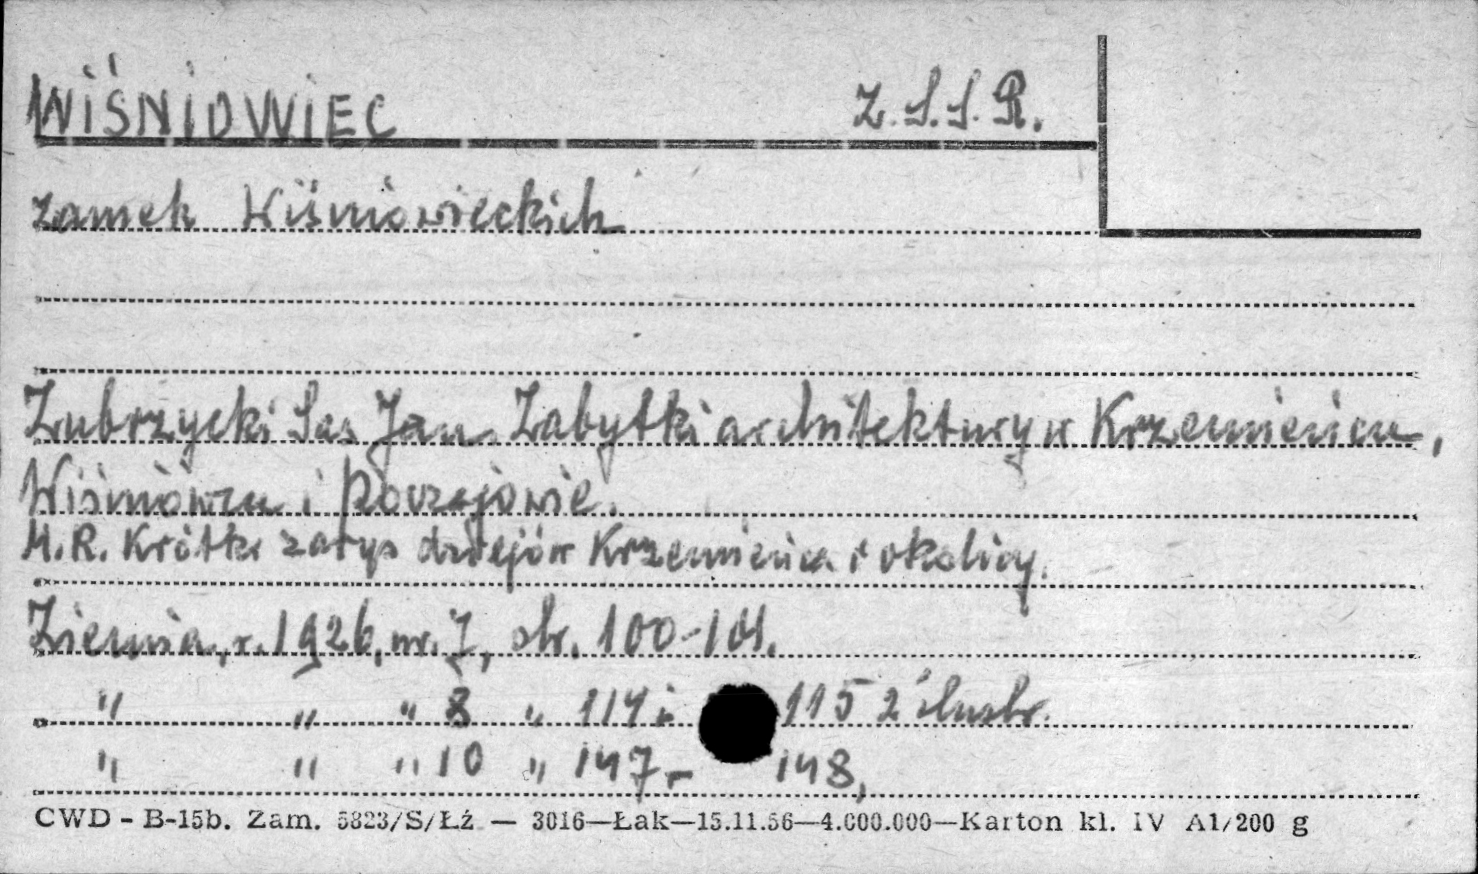 WIŚNIOWIEC Z.S.S.R.
zamek Wiśniowieckich
Zubrzycki Sas Jan. Zabytki architektury w Krzemieńcu,
Wiśniówcu i Poczajowie.
M.R. Krótki zarys dziejów Krzemieńca i okolicy.
Ziemia, r. 1926, nr. 7, str. 100-101.
" " " 8 " 114 i 115 2 ilustr.
" " " 10 " 147- 148,
CWD - B-15b. Zam. 5823/S/Łź — 3016—Łak—15.11.56—4.000.000—Karton kl. IV A1/200 g